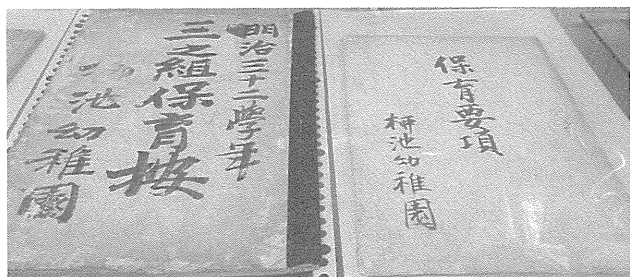 保育要項
池幼稚園
明治三十二學年
三之組保育按
池幼稚園